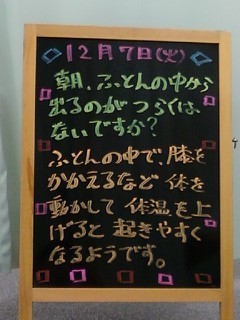 12月7日(火)
朝、ふとんの中から
出るのがつらくは
ないですか?
ふとんの中で、膝を
かかえるなど体を
動かして体温を上
げると起きやすく
なるようです。